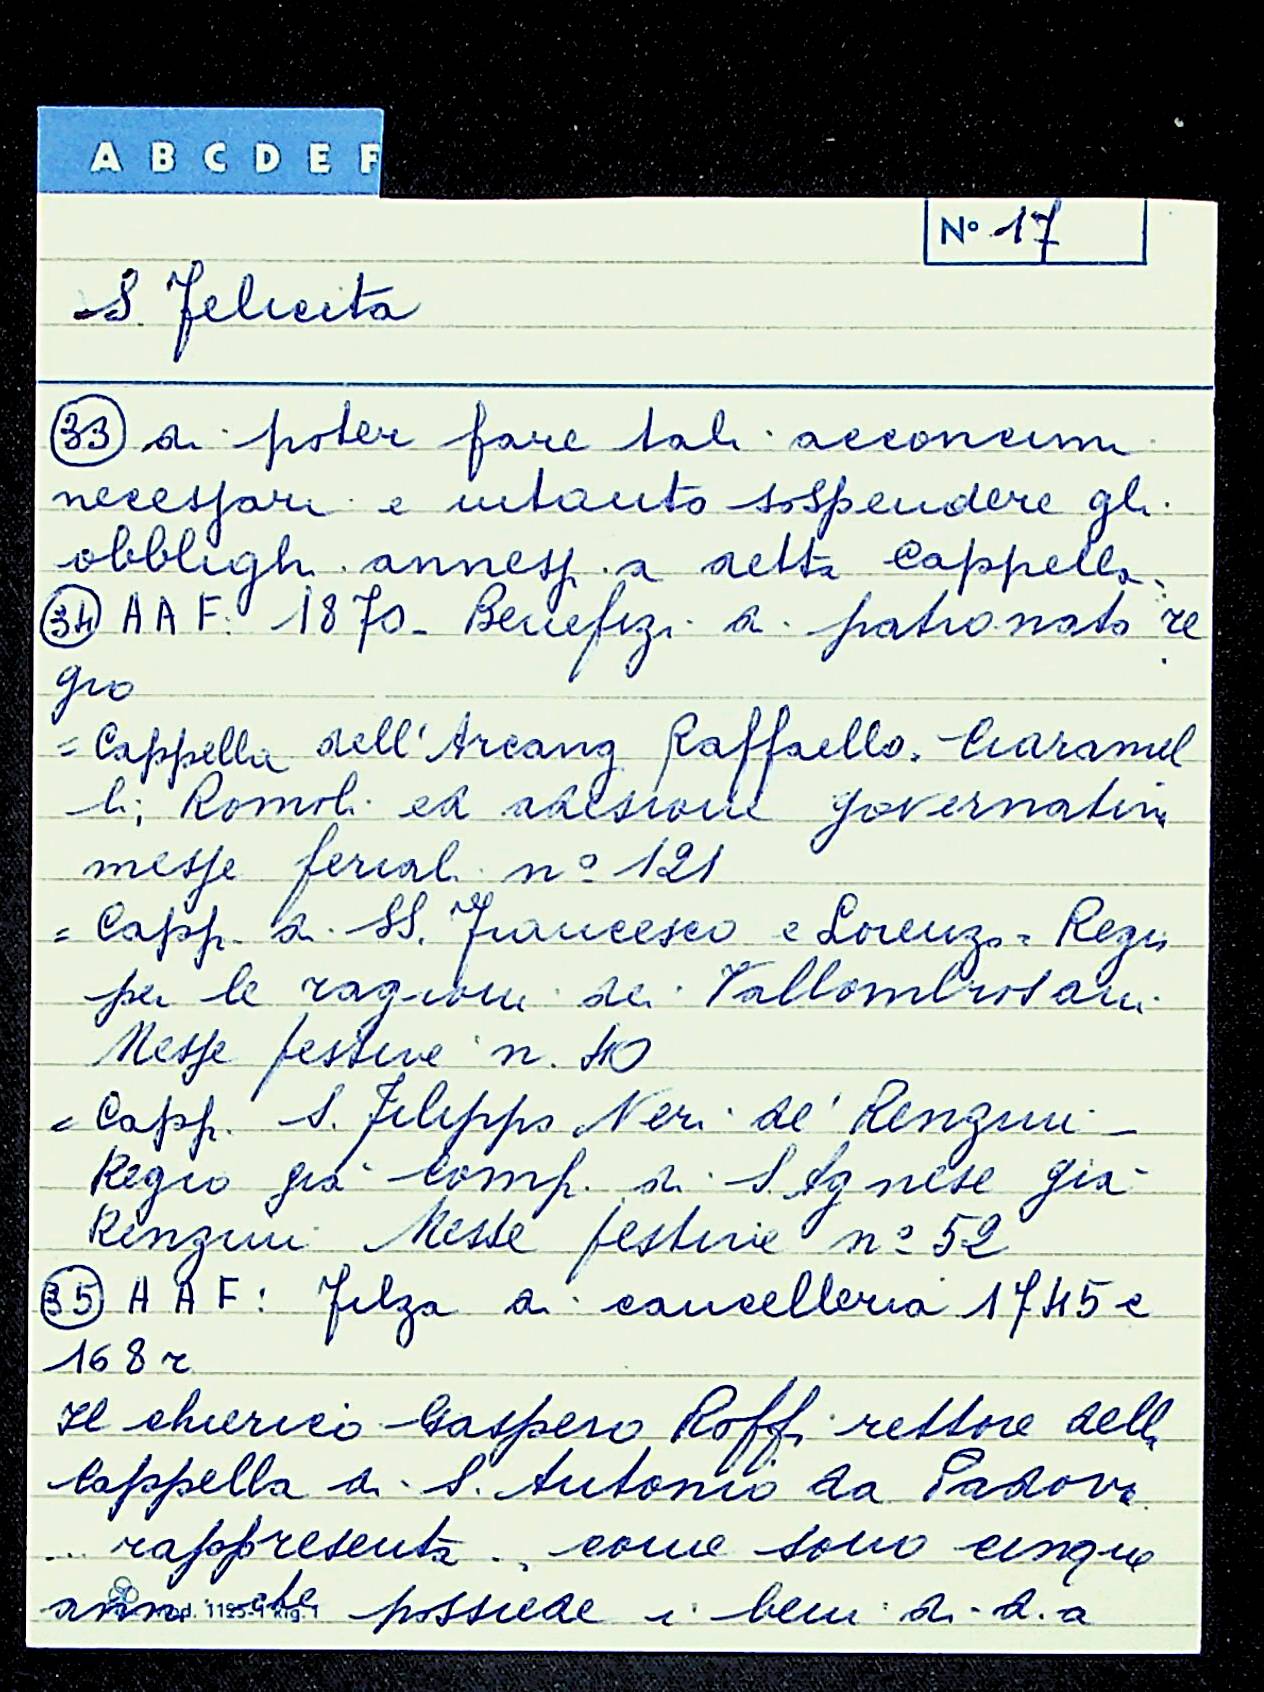 A B C D E F
N° 17
S. Felicita
33 di poter fare tali acconcimi
necessari e intanto sospendere gli
obblighi annessi a detta Cappella.
34 AAF: 1870 - Benefizi di patronato re
gio
= Cappella dell'Arcang Raffaello. Ciaramel
li; Romoli ed adesione governativa
messe feriali n° 121
= Capp. di SS. Francesco e Lorenzo = Regio
per le ragioni dei Vallombrosani
Messe festive n. 40
= Capp. S. Filippo Neri de' Renzini -
Regio già Comp. di S. Agnese già
Renzini Messe festive n° 52
35 AAF: Filza di cancelleria 1745 c
168 r
Il chierico Gaspero Roffi rettore della
Cappella di S. Antonio da Padova
... rappresenta .. come sono cinque
anni che possiede i beni di d.a